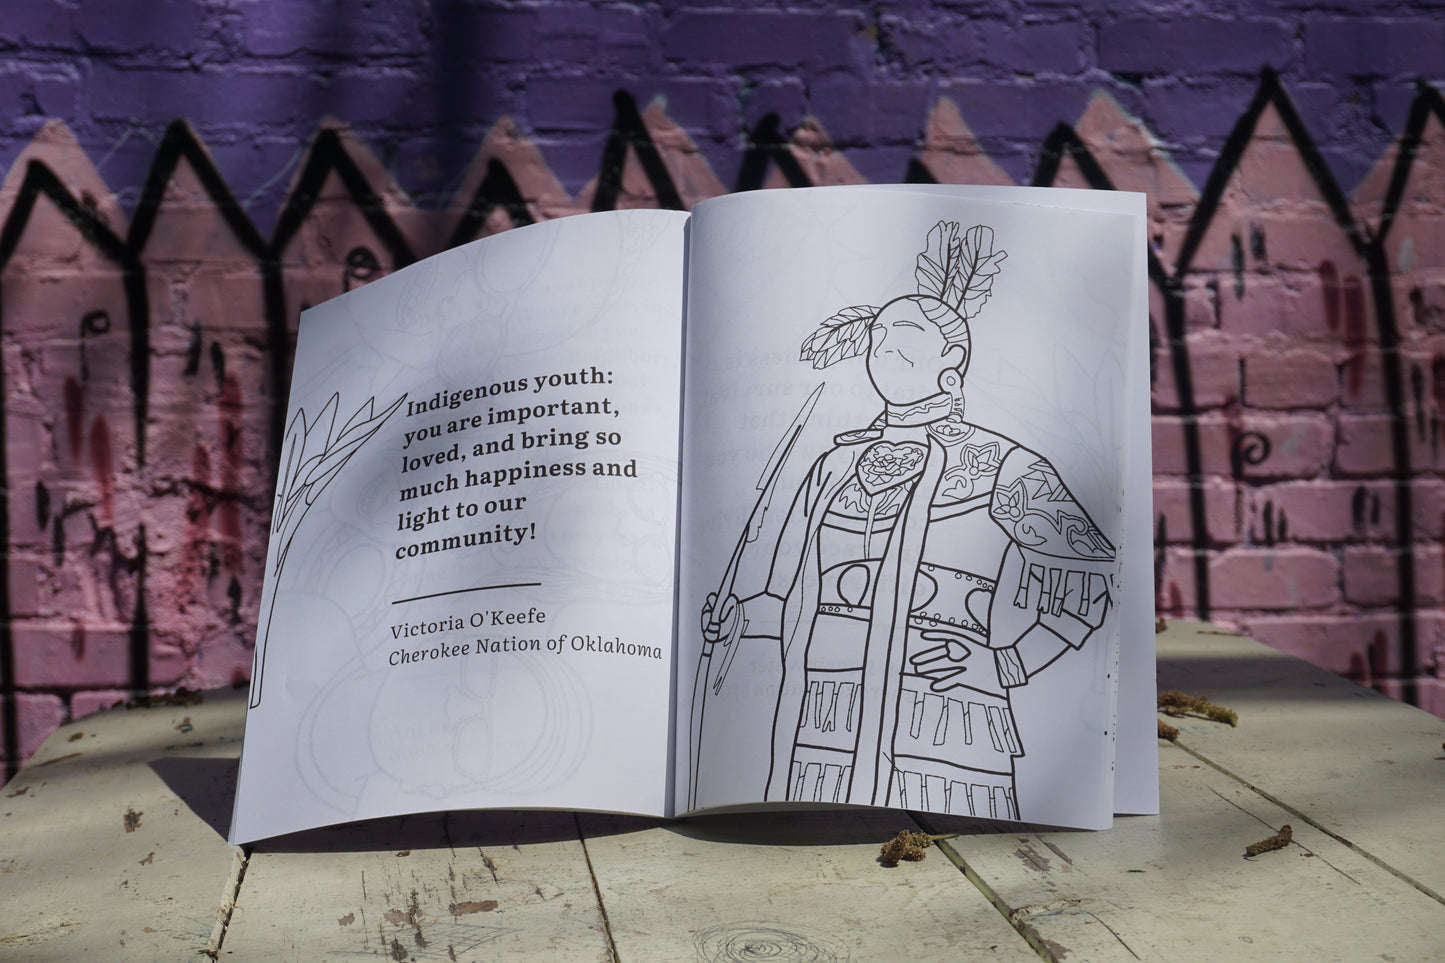 Indigenous youth:
you are important,
loved, and bring so
much happiness and
light to our
community!
Victoria O'Keefe
Cherokee Nation of Oklahoma